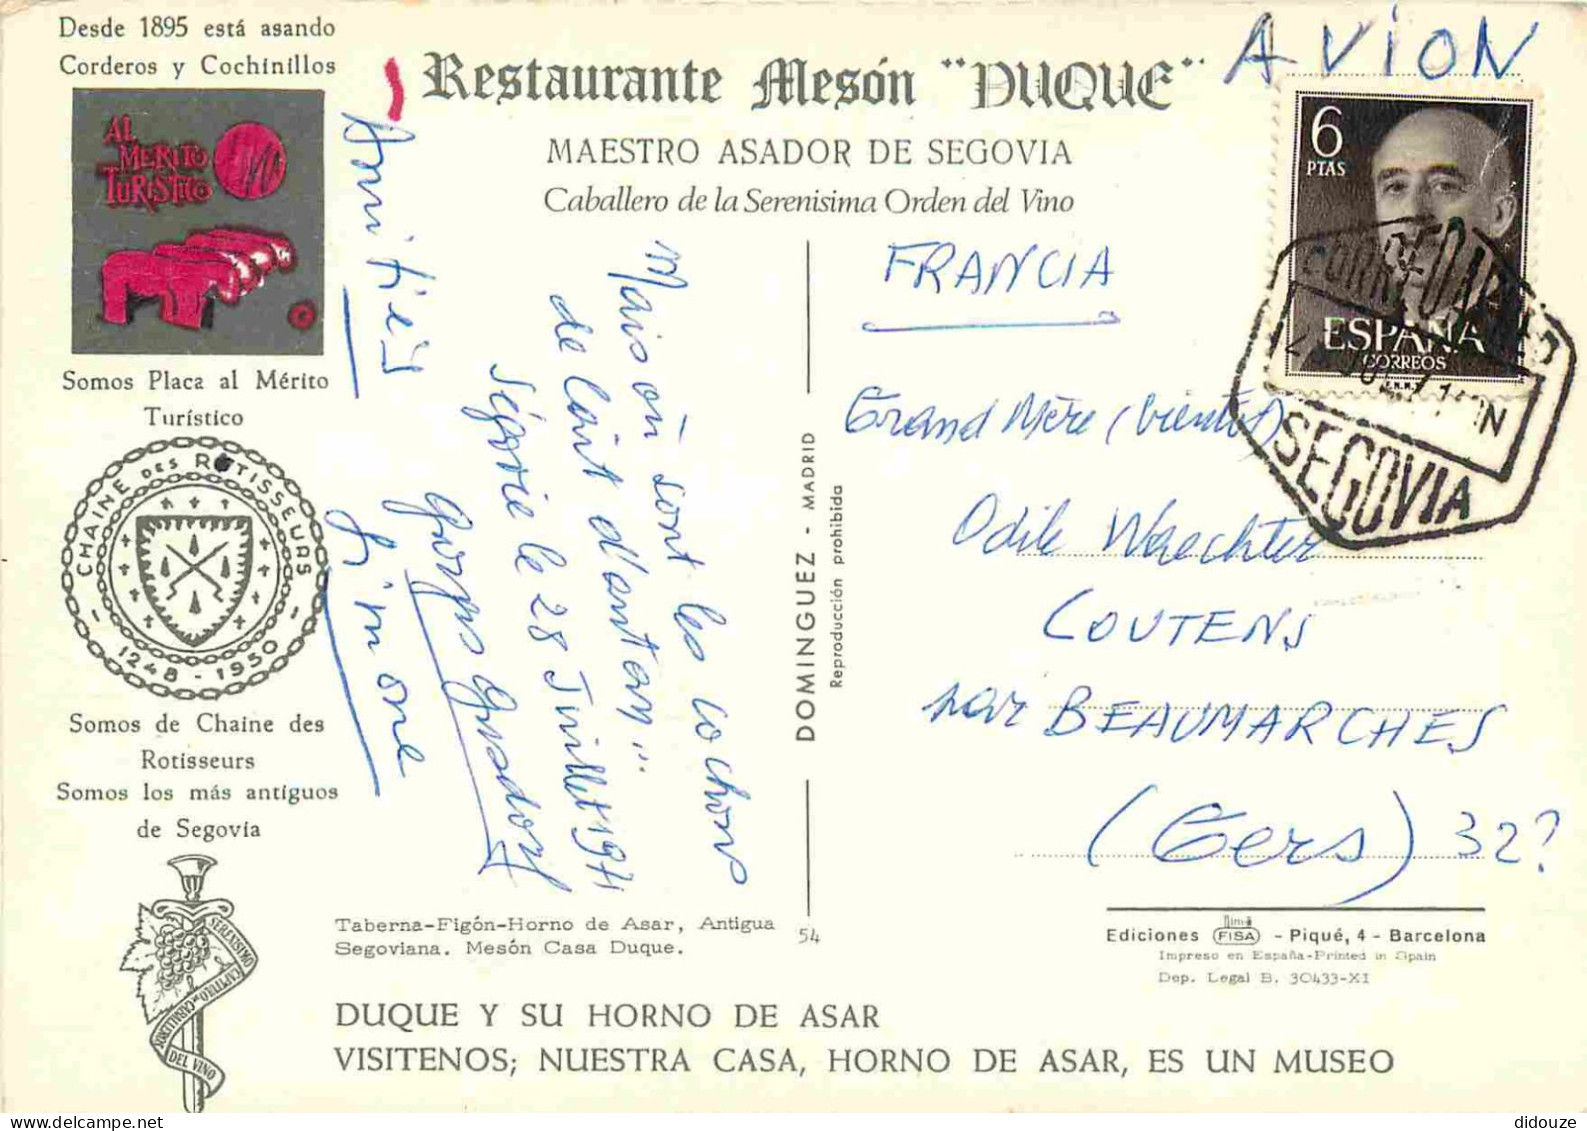 Desde 1895 está asando
Corderos y Cochinillos
AL
MERITO
TURISTICO
Somos Placa al Mérito
Turístico
CHAINE DES ROTISSEURS
1248 - 1950
Somos de Chaine des
Rotisseurs
Somos los más antiguos
de Segovia
SERENISIMO
CAPITULO DE CABALLEROS
DEL VINO
Restaurante Mesón "DUQUE"
MAESTRO ASADOR DE SEGOVIA
Caballero de la Serenisima Orden del Vino
Mais où sont les cochons
de lait d'antan"
Ségovie le 28 Juillet 1971
Georges Gusdorf
Amitiés
Simone
Taberna-Figón-Horno de Asar, Antigua
Segoviana. Mesón Casa Duque.
54
DOMINGUEZ - MADRID
Reproducción prohibida
AVION
6
PTAS
ESPAÑA
CORREOS
CORREO AEREO
SEGOVIA
FRANCIA
Grand Mère (bientôt)
Odile Waechter
COUTENS
par BEAUMARCHES
(Gers) 32?
Ediciones FISA - Piqué, 4 - Barcelona
Impreso en España-Printed in Spain
Dep. Legal B. 30433-XI
DUQUE Y SU HORNO DE ASAR
VISITENOS; NUESTRA CASA, HORNO DE ASAR, ES UN MUSEO
didouze